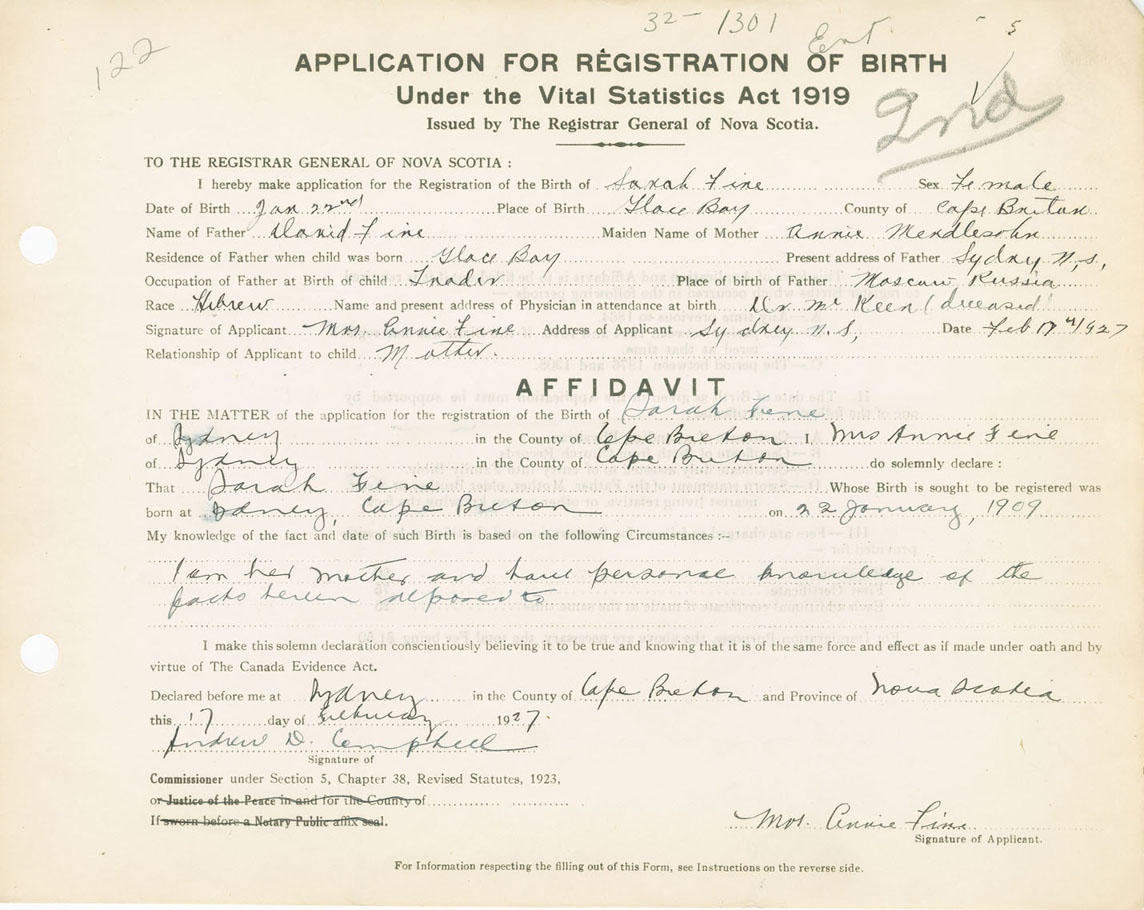 32-1301
Ent.
122
APPLICATION FOR REGISTRATION OF BIRTH
Under the Vital Statistics Act 1919
2nd
Issued by The Registrar General of Nova Scotia.
TO THE REGISTRAR GENERAL OF NOVA SCOTIA :
I hereby make application for the Registration of the Birth of Sarah Fine Sex Female
Date of Birth Jan 22nd Place of Birth Glace Bay County of Cape Briton
Name of Father David Fine Maiden Name of Mother Annie Mendlesohn
Residence of Father when child was born Glace Bay Present address of Father Sydney N.S,
Occupation of Father at Birth of child Trader Place of birth of Father Moscow Russia
Race Hebrew Name and present address of Physician in attendance at birth Dr Mc Keen (deceased
Signature of Applicant Mrs. Annie Fine Address of Applicant Sydney N.S, Date Feb 17th/1927
Relationship of Applicant to child Mother.
AFFIDAVIT
IN THE MATTER of the application for the registration of the Birth of Sarah Fine
of Sydney in the County of Cape Breton I, Mrs Annie Fine
of Sydney in the County of Cape Breton do solemnly declare :
That Sarah Fine Whose Birth is sought to be registered was
born at Sydney, Cape Breton on 22 January, 1909
My knowledge of the fact and date of such Birth is based on the following Circumstances :--
I am her mother and have personal knowledge of the
facts herein deposed to
I make this solemn declaration conscientiously believing it to be true and knowing that it is of the same force and effect as if made under oath and by
virtue of The Canada Evidence Act.
Declared before me at Sydney in the County of Cape Breton and Province of Nova Scotia
this 17 day of February 1927.
Andrew D. Campbell
Signature of
Commissioner under Section 5, Chapter 38, Revised Statutes, 1923,
or Justice of the Peace in and for the County of
If sworn before a Notary Public affix seal.
Mrs. Annie Fine
Signature of Applicant.
For Information respecting the filling out of this Form, see Instructions on the reverse side.